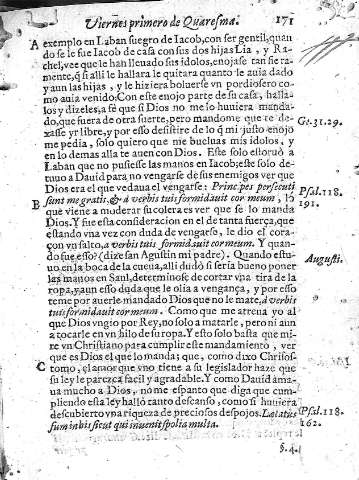 Viernes primero de Quaresma. 171
A exemplo en Laban suegro de Iacob, con ser gentil, quan
do se le fue Iacob de casa con sus dos hijas Lia, y Ra-
chel, vee que le han lleuado sus idolos, enojase tan fiera
mente, q̃ si alli le hallara le quitara quanto le auia dado
y aun las hijas, y le hiziera boluerse vn pordiosero co-
mo auia venido. Con este enojo parte de su casa, halla-
los y dizeles, a fé que si Dios no me lo huuiera manda-
do, que fuera de otra suerte, pero mandome que te de- Ge. 31. 29.
xasse yr libre, y por esso desistire de lo q̃ mi justo enojo
me pedia, solo quiero que me bueluas mis idolos, y
en lo demas alla te auen con Dios. Este solo estoruò a
Laban que no pusiesse las manos en Iacob; este solo de-
tuuo a Dauid para no vengarse de sus enemigos ver que
Dios era el que vedaua el vengarse: Principes persecuti
B sunt me gratis, & à verbis tuis formidauit cor meum, lo Psal. 118.
que viene a moderar su colera es ver que se lo manda 191.
Dios. Y fue esta consideracion en el de tanta fuerça, que
estando vna vez con duda de vengarse, le dio el cora-
çon vn salto, a verbis tuis formidauit cor meum. Y quan-
do fue esso? (dize san Agustin mi padre) Quando estu- Augusti.
uo en la boca de la cueua, alli dudó si seria bueno poner
las manos en Saul, determinose de cortar vna tira de la
ropa, y aun esso duda que le olia a vengança, y por esso
teme por auerle mandado Dios que no le mate, à verbis
tuis formidauit cor meum. Como que me atreua yo al
que Dios vngio por Rey, no solo a matarle, pero ni aun
a tocarle en vn hilo de su ropa. Y esto solo basta que mi-
re vn Christiano para cumplir este mandamiento, ver
que es Dios el que lo manda; que, como dixo Chrisos-
C tomo, el amor que vno tiene a su legislador haze que
su ley le parezca facil y agradable. Y como Dauid ama-
ua mucho a Dios, no me espanto que diga que cum-
pliendo esta ley halló tanto descanso, como si huuiera
descubierto vna riqueza de preciosos despojos. Lætaties Psal. 118.
sum in bis sicut qui inuenit spolia multa. 162.
§. 4.